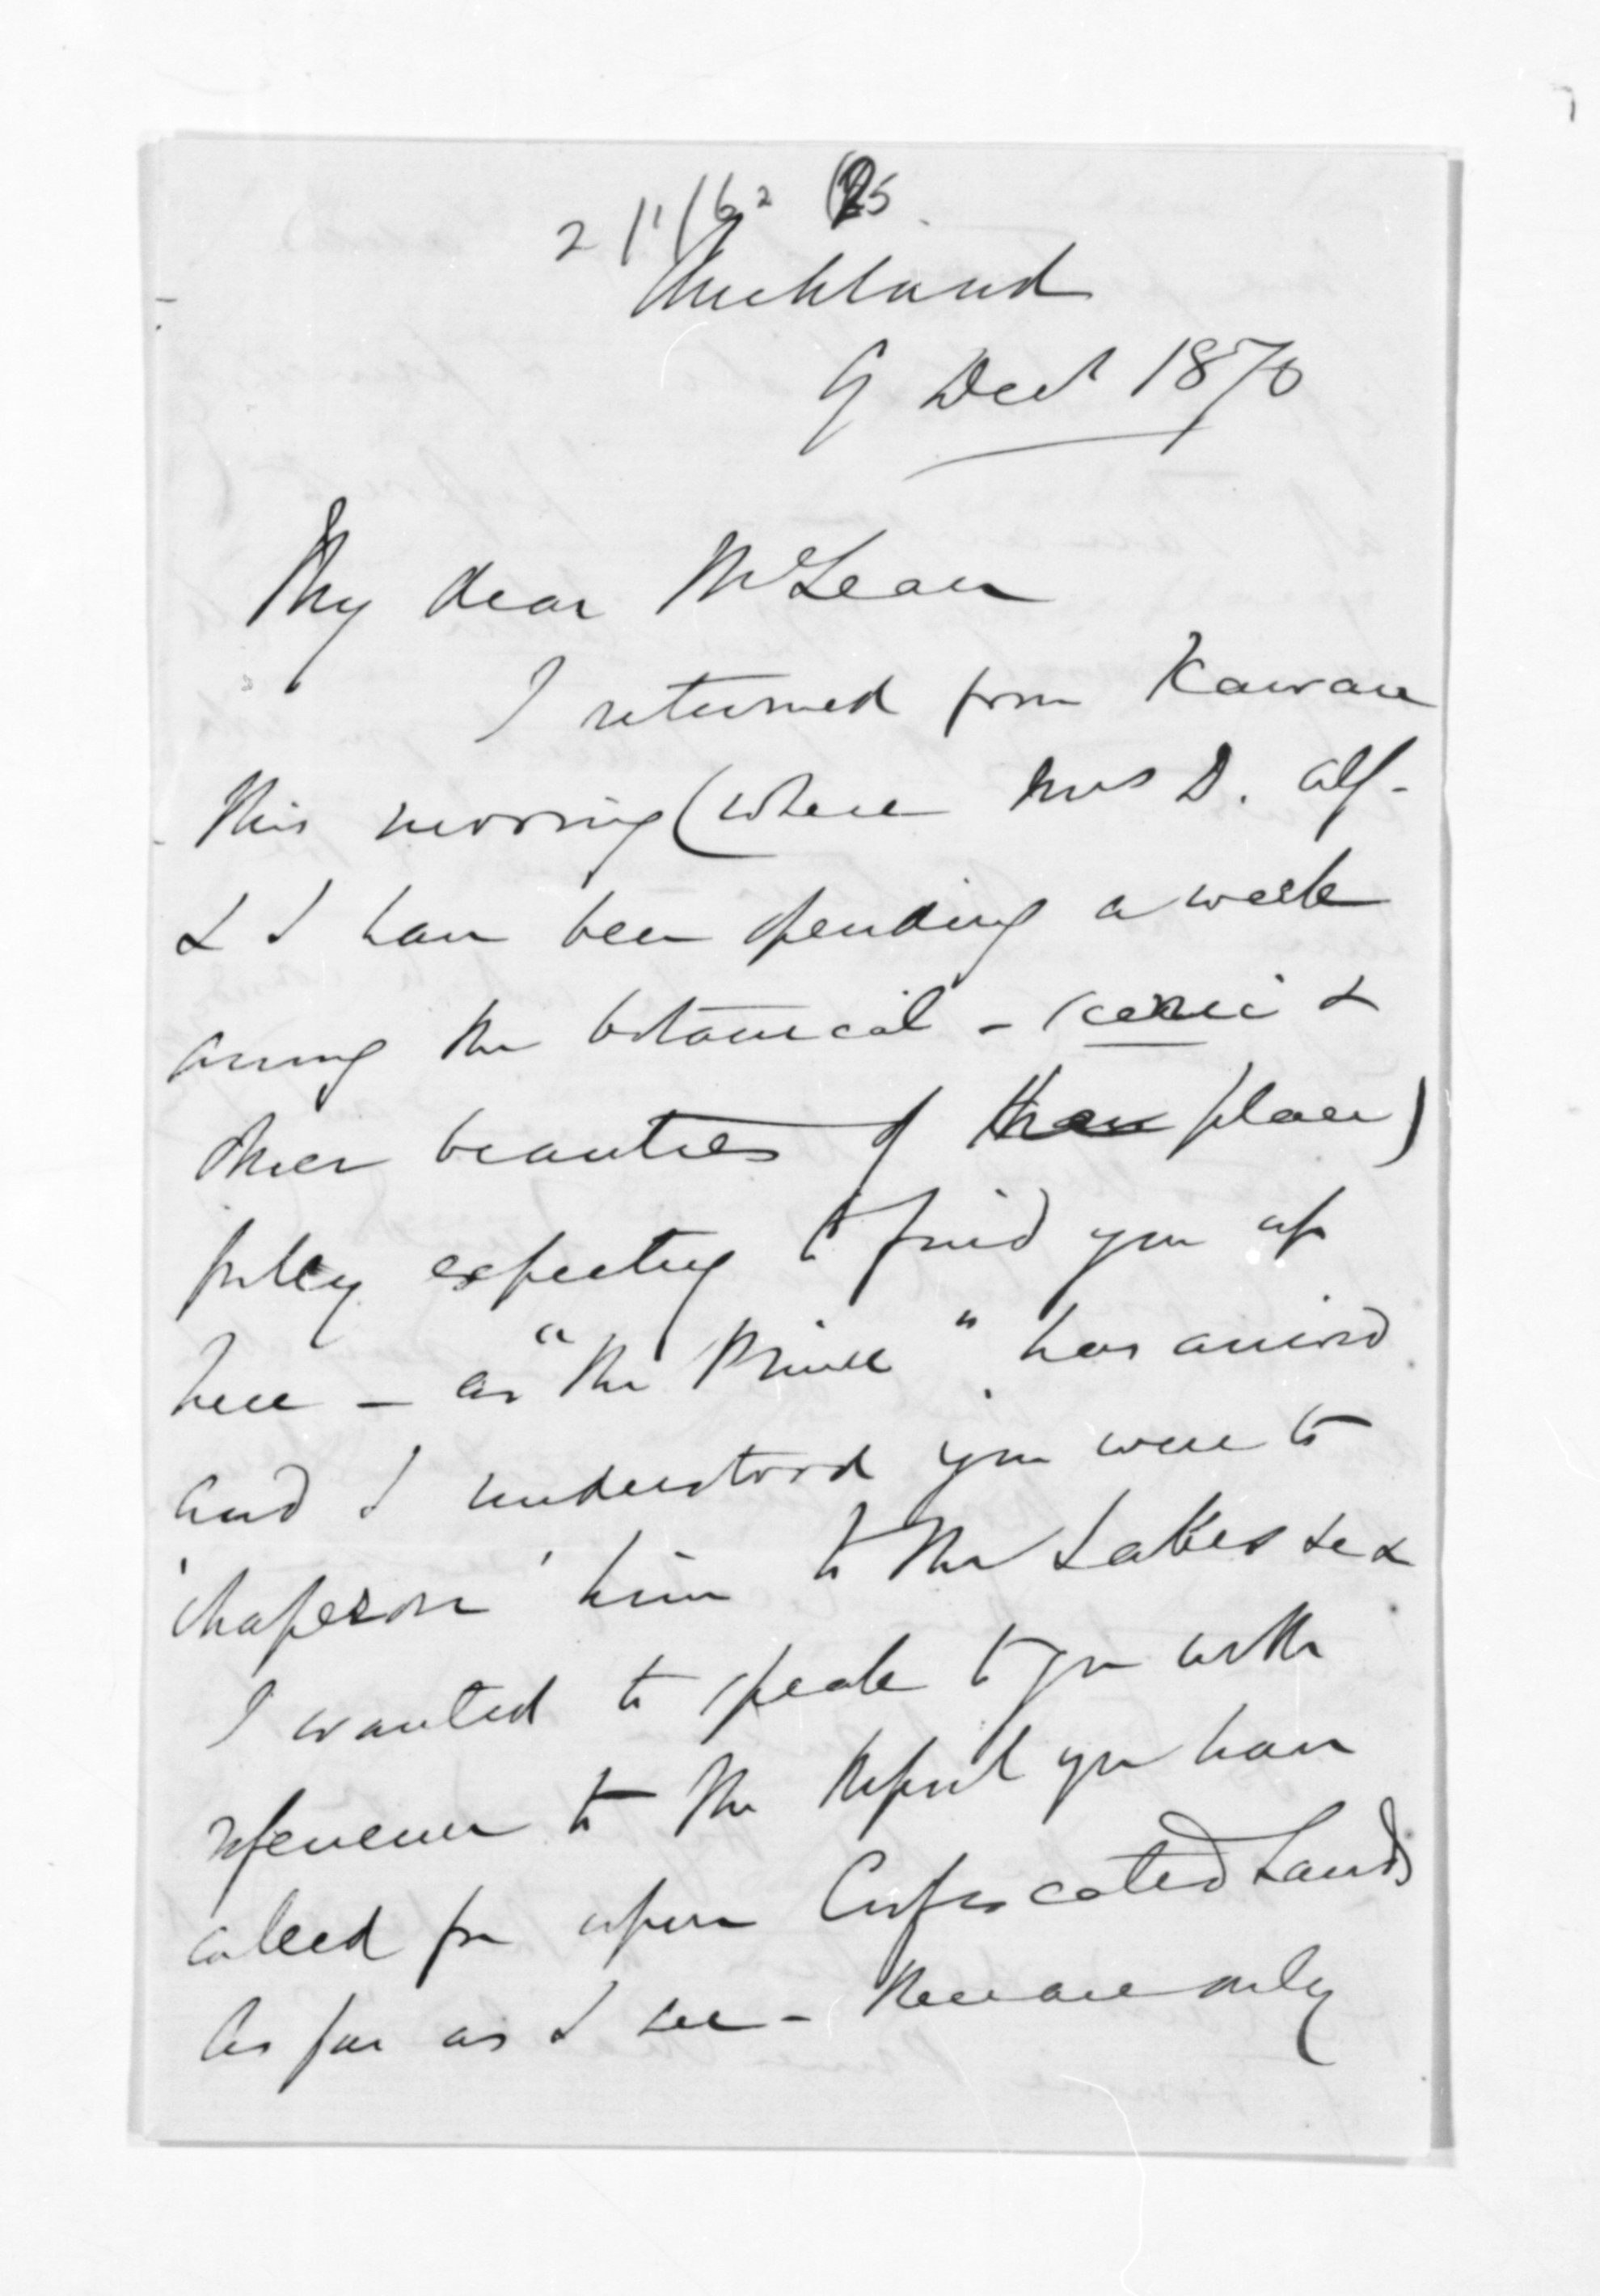 Auckland
9 Decr 1870
My dear McLean
I returned from Kawau
this morning (where Mrs D. Alf-
& I have been spending a week
among the botanical - scenic &
other beauties of place)
fully expecting to find you up
here - as "the Prince" has arrived
and I understood you were to
'chaperon' him to the Lakes &c &
I wanted to speak to you with
reference to the Report you have
called for upon Confiscated Lands
As far as I see - there are only